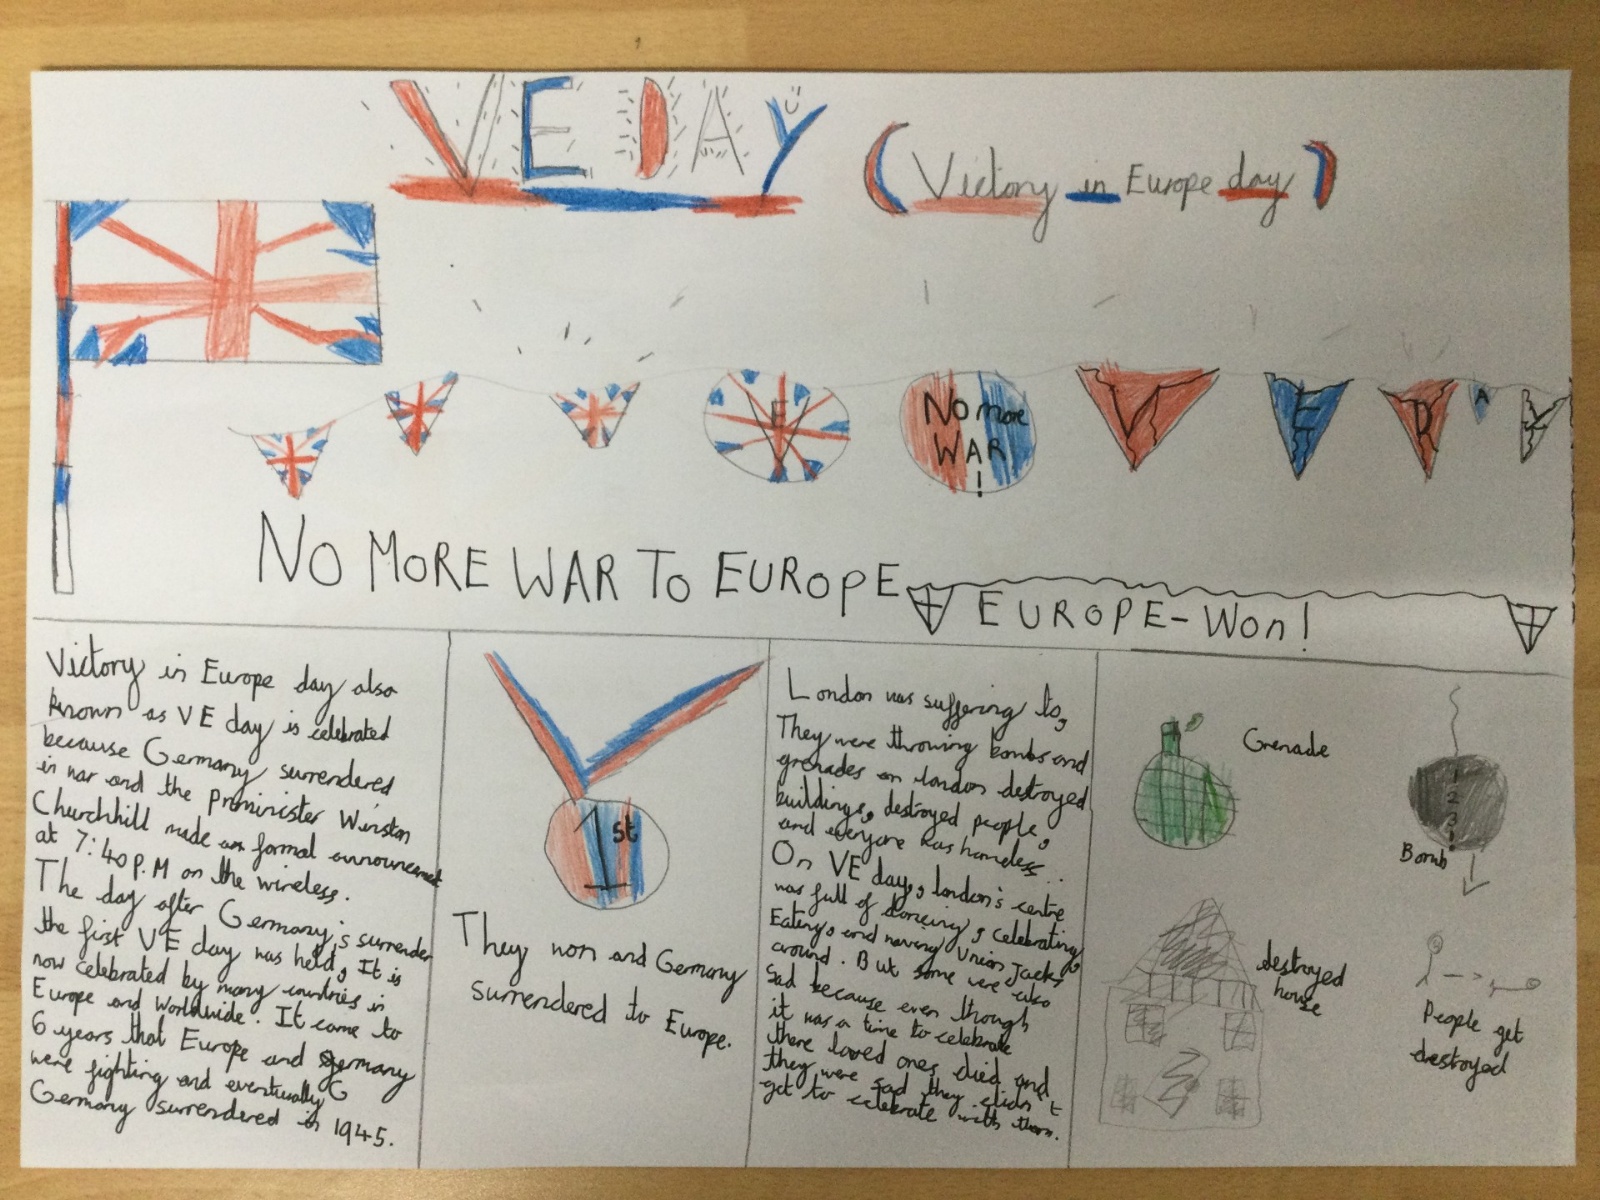 VE DAY
(Victory in Europe day)
VE
No more
WAR
!
V
E
D
A
Y
NO MORE WAR TO EUROPE
EUROPE-Won!
Victory in Europe day also
known as VE day is celebrated
because Germany surrendered
in war and the priminister Winston
Churchhill made an formal announcement
at 7:40 P.M on the wireless.
The day after Germany's surrender
the first VE day was held, It is
now celebrated by many countries in
Europe and worldwide. It came to
6 years that Europe and Germany
were fighting and eventually G
Germany surrendered in 1945.
1st
They won and Germany
surrendered to Europe.
London was suffering to,
They were throwing bombs and
grenades on london destroyed
buildings, destroyed people,
and everyone was homeless...
On VE day, london's centre
was full of dancing, celebrating,
Eating, and waving Union Jacks
around. But some were also
sad because even though
it was a time to celebrate
there loved ones died and
they were sad they didn't
get to celebrate with them.
Grenade
1
2
3
!
Bomb
destroyed
house
People get
destroyed